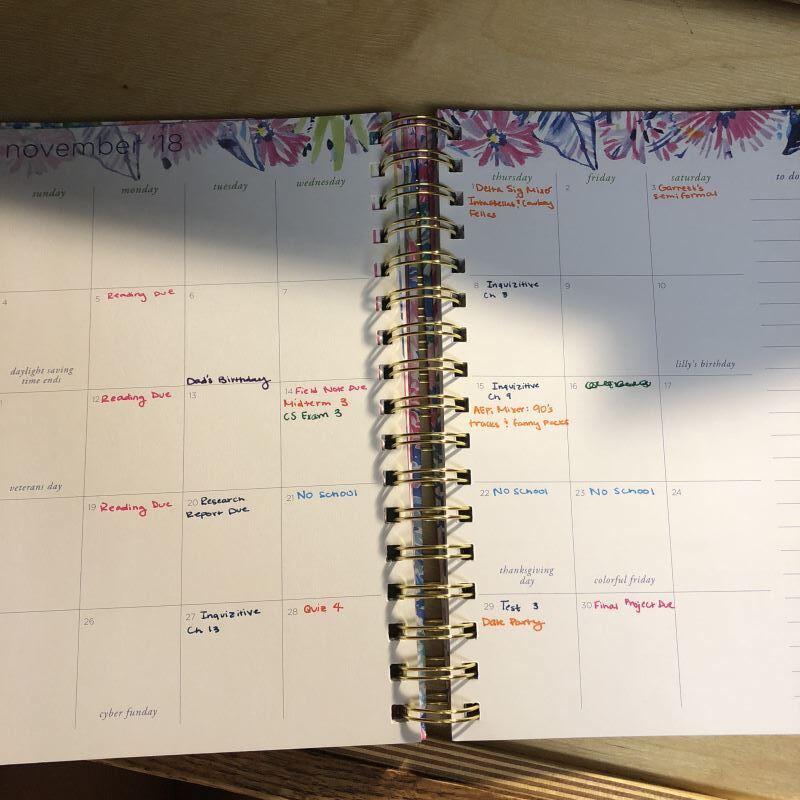 november '18
sunday
monday
tuesday
wednesday
thursday
friday
saturday
to do
1 Delta Sig Mixer
Cowboy
Fellas
2
3 Garrett's
semiformal
4
daylight saving
time ends
5 Reading Due
6
Dad's Birthday
7
8 Inquizitive
Ch 8
9
10
lilly's birthday
veterans day
12 Reading Due
13
14 Field Note Due
Midterm 3
CS Exam 3
15 Inquizitive
Ch 9
AEPi Mixer: 90's
tracks & fanny packs
16
17
19 Reading Due
20 Research
Report Due
21 No School
22 No School
thanksgiving
day
23 No School
colorful friday
24
26
cyber funday
27 Inquizitive
Ch 13
28 Quiz 4
29 Test 3
Date Party
30 Final Project Due